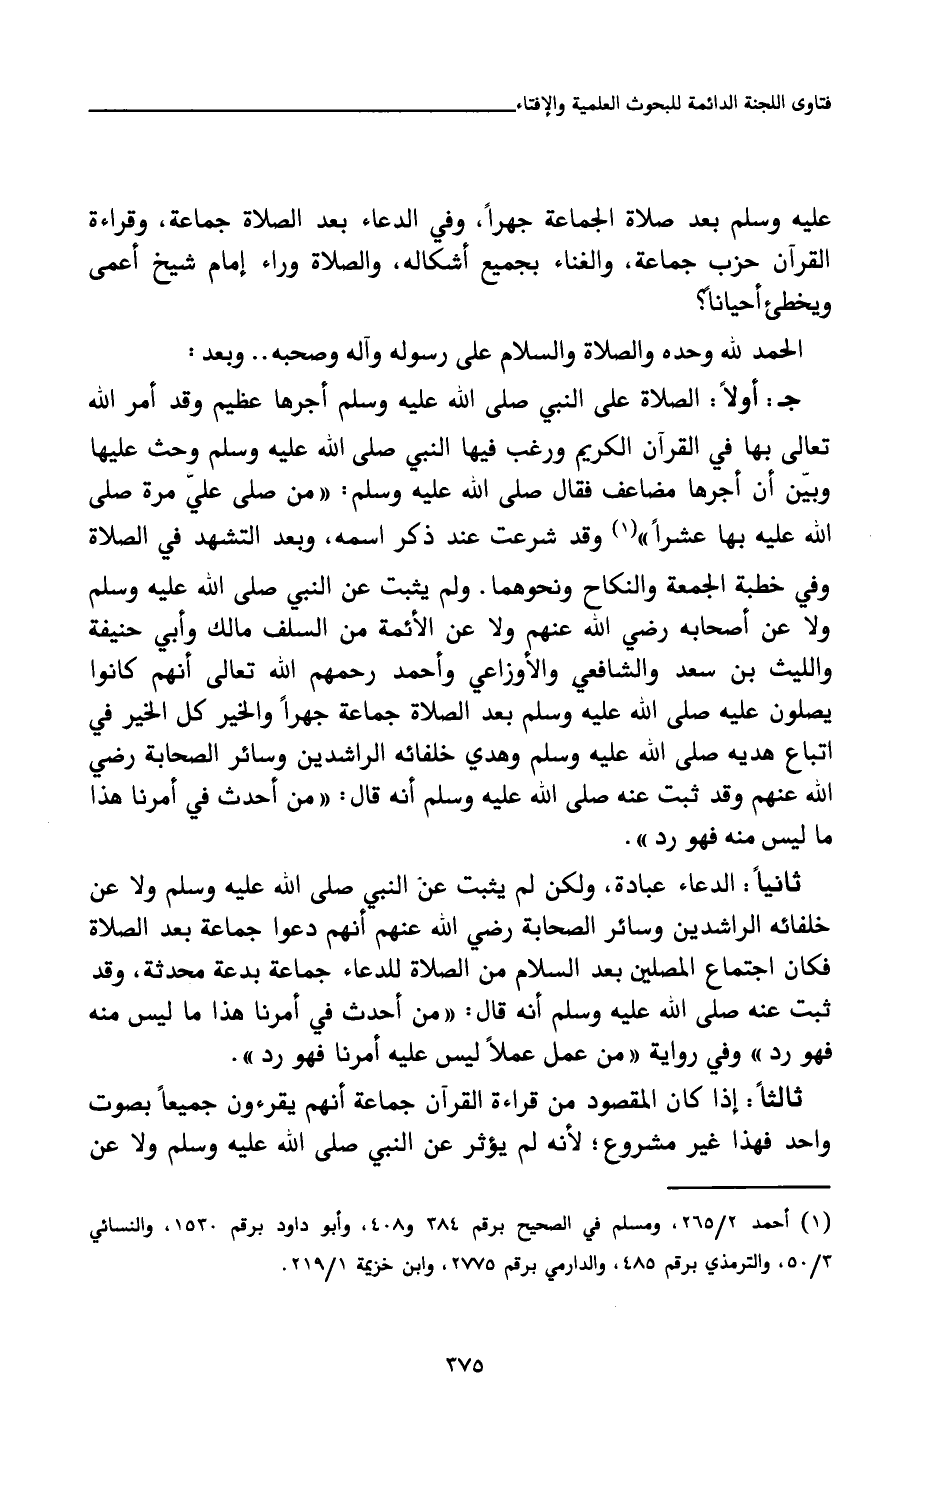 فتاوى اللجنة الدائمة للبحوث العلمية والإفتاء
عليه وسلم بعد صلاة الجماعة جهراً، وفي الدعاء بعد الصلاة جماعة، وقراءة
القرآن حزب جماعة، والغناء بجميع أشكاله، والصلاة وراء إمام شيخ أعمى
ويخطئ أحياناً؟
الحمد لله وحده والصلاة والسلام على رسوله وآله وصحبه.. وبعد :
جـ : أولاً : الصلاة على النبي صلى الله عليه وسلم أجرها عظيم وقد أمر الله
تعالى بها في القرآن الكريم ورغب فيها النبي صلى الله عليه وسلم وحث عليها
وبيّن أن أجرها مضاعف فقال صلى الله عليه وسلم : «من صلى عليّ مرة صلى
الله عليه بها عشراً»(١) وقد شرعت عند ذكر اسمه، وبعد التشهد في الصلاة
وفي خطبة الجمعة والنكاح ونحوهما . ولم يثبت عن النبي صلى الله عليه وسلم
ولا عن أصحابه رضي الله عنهم ولا عن الأئمة من السلف مالك وأبي حنيفة
والليث بن سعد والشافعي والأوزاعي وأحمد رحمهم الله تعالى أنهم كانوا
يصلون عليه صلى الله عليه وسلم بعد الصلاة جماعة جهراً والخير كل الخير في
اتباع هديه صلى الله عليه وسلم وهدي خلفائه الراشدين وسائر الصحابة رضي
الله عنهم وقد ثبت عنه صلى الله عليه وسلم أنه قال : «من أحدث في أمرنا هذا
ما ليس منه فهو رد» .
ثانياً : الدعاء عبادة، ولكن لم يثبت عن النبي صلى الله عليه وسلم ولا عن
خلفائه الراشدين وسائر الصحابة رضي الله عنهم أنهم دعوا جماعة بعد الصلاة
فكان اجتماع المصلين بعد السلام من الصلاة للدعاء جماعة بدعة محدثة، وقد
ثبت عنه صلى الله عليه وسلم أنه قال : «من أحدث في أمرنا هذا ما ليس منه
فهو رد» وفي رواية «من عمل عملاً ليس عليه أمرنا فهو رد» .
ثالثاً : إذا كان المقصود من قراءة القرآن جماعة أنهم يقرءون جميعاً بصوت
واحد فهذا غير مشروع؛ لأنه لم يؤثر عن النبي صلى الله عليه وسلم ولا عن
(١) أحمد ٢/ ٢٦٥، ومسلم في الصحيح برقم ٣٨٤ و٤٠٨، وأبو داود برقم ١٥٣٠، والنسائي
٣/ ٥٠، والترمذي برقم ٤٨٥، والدارمي برقم ٢٧٧٥، وابن خزيمة ١/ ٢١٩.
٣٧٥